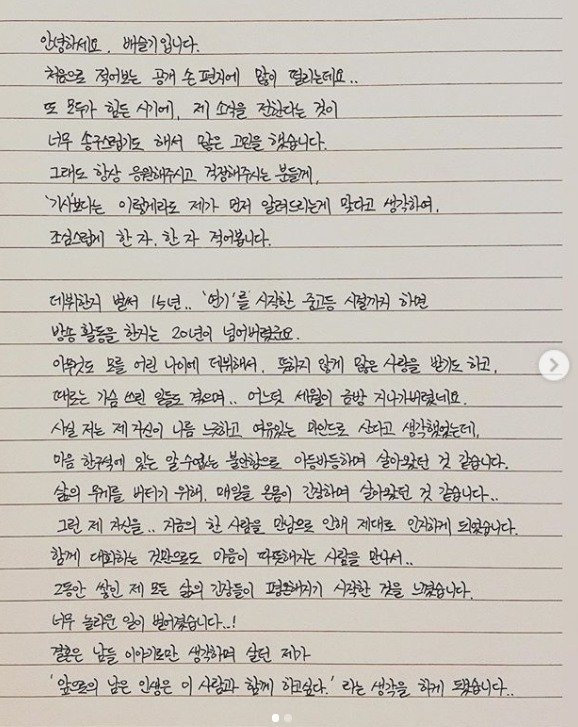 안녕하세요. 배슬기입니다.
처음으로 적어보는 공개 손편지에 많이 떨리는데요..
또 모두가 힘든 시기에, 제 소식을 전한다는 것이
너무 송구스럽기도 해서 많은 고민을 했습니다.
그래도 항상 응원해주시고 걱정해주시는 분들께,
'기사'보다는 이렇게라도 제가 먼저 알려드리는게 맞다고 생각하여,
조심스럽게 한 자, 한 자 적어봅니다.
데뷔한지 벌써 15년.. '연기'를 시작한 중고등 시절까지 하면
방송 활동을 한지는 20년이 넘어버렸군요.
아무것도 모를 어린 나이에 데뷔해서, 뜻하지 않게 많은 사랑을 받기도 하고,
때로는 가슴 쓰린 일들도 겪으며.. 어느덧 세월이 금방 지나가버렸네요.
사실 저는 제 자신이 나름 느긋하고 여유있는 마인드로 산다고 생각했었는데,
마음 한구석에 있는 알 수 없는 불안함으로 아등바등하며 살아왔던 것 같습니다.
삶의 무게를 버티기 위해, 매일을 온몸이 긴장하며 살아왔던 것 같습니다..
그런 제 자신을.. 지금의 한 사람을 만남으로 인해 제대로 인지하게 되었습니다.
함께 대화하는 것만으로도 마음이 따뜻해지는 사람을 만나서..
그동안 쌓인 제 모든 삶의 긴장들이 평온해지기 시작한 것을 느꼈습니다.
너무 놀라운 일이 벌어졌습니다..!
결혼은 남들 이야기로만 생각하며 살던 제가
'앞으로의 남은 인생은 이 사람과 함께 하고싶다.' 라는 생각을 하게 됐습니다..